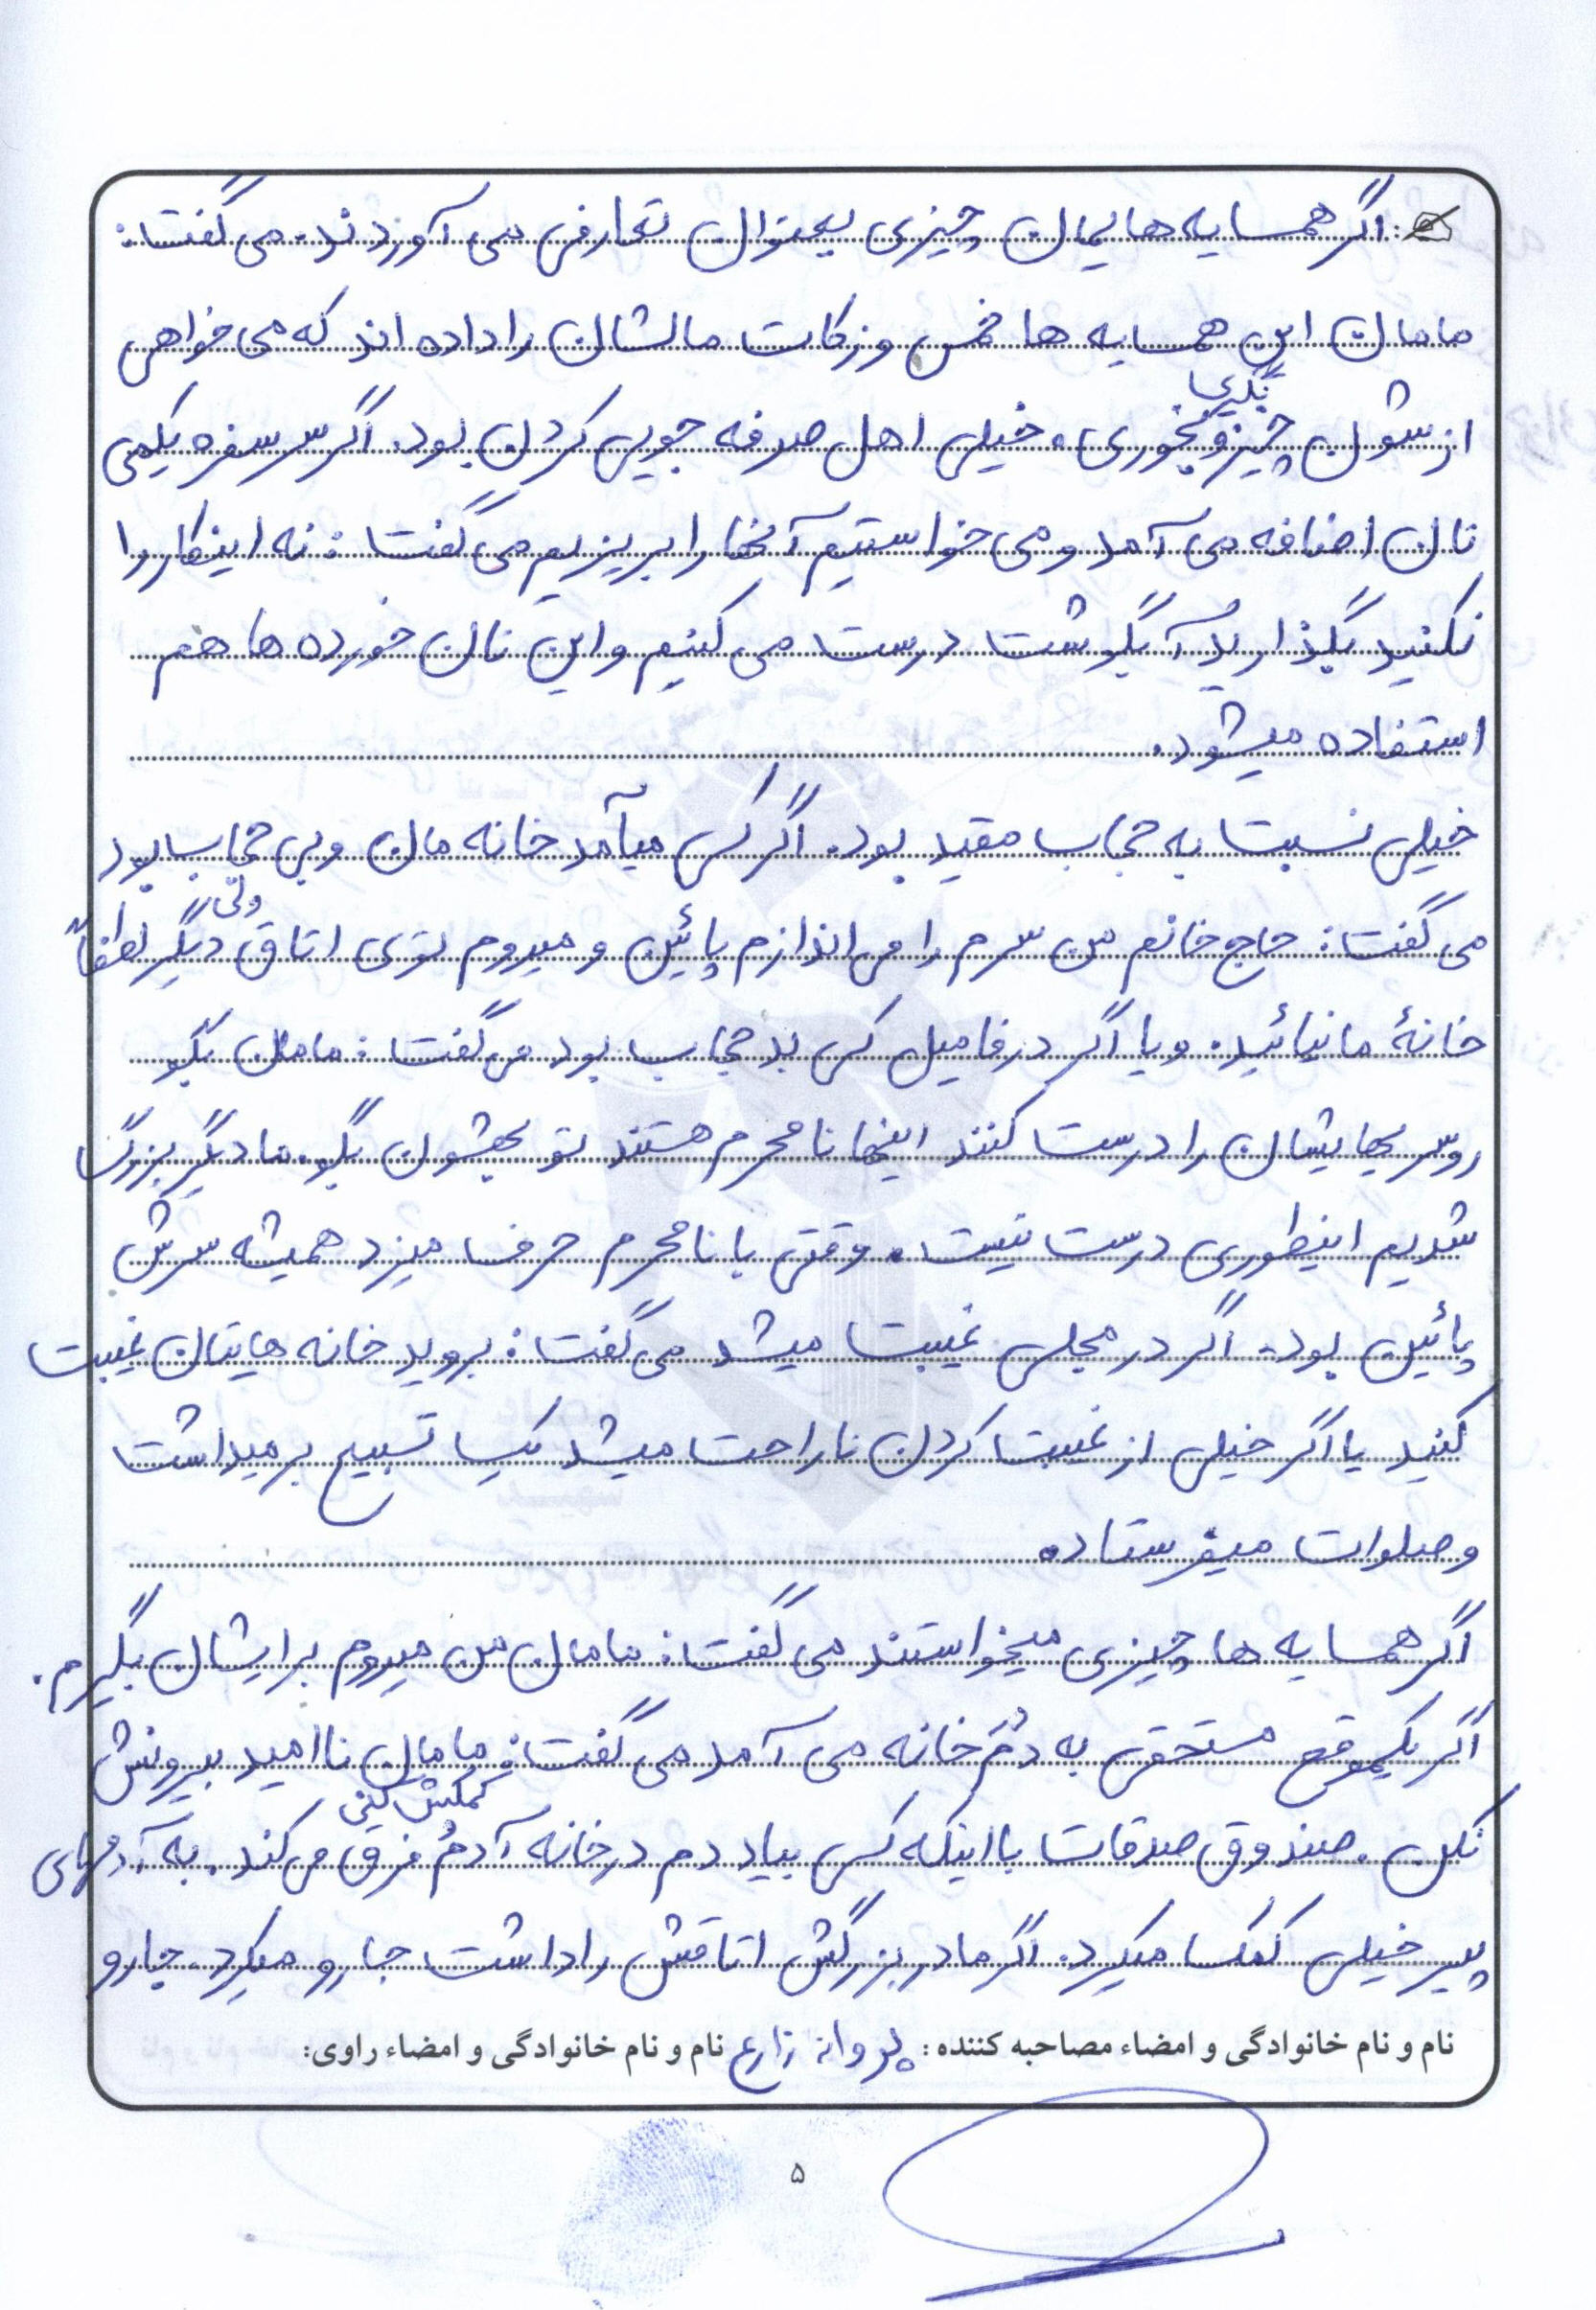 : اگر همسایه هایمان چیزی بعنوان تعارفی می آوردند. می گفت:
مامان این همسایه ها خمس و زکات مالشان را داده اند که می خواهی
بگیری
از شون چیز و بخوری. خیلی اهل صرفه جویی کردن بود. اگر سر سفره یکمی
نان اضافه می آمد و می خواستیم آنها را بریزیم می گفت: نه اینکار را
نکنید بگذارید آبگوشت درست می کنیم و این نان خورده ها هم
استفاده میشود.
خیلی نسبت به حجاب مقید بود. اگر کسی میآمد خانه مان و بی حجاب بود
ولی
می گفت: حاج خانم من سرم را می اندازم پائین و میروم توی اتاق دیگر لطفاً
خانهٔ ما نیائید. و یا اگر در فامیل کسی بد حجاب بود می گفت: مامان بگو
روسریهایشان را درست کنند اینها نامحرم هستند تو بهشون بگو. ما دیگر بزرگ
شدیم اینطوری درست نیست. وقتی با نامحرم حرف میزد همیشه سرش
پائین بود. اگر در مجلس غیبت میشد می گفت: بروید خانه هایتان غیبت
کنید یا اگر خیلی از غیبت کردن ناراحت میشد یک تسبیح برمیداشت
و صلوات میفرستاد.
اگر همسایه ها چیزی میخواستند می گفت: مامان من میروم برایشان بگیرم.
اگر یکموقع مستحقی به درُ خانه می آمد می گفت: مامان ناامید بیرونش
کمکش کنی
نکن. صندوق صدقات با اینکه کسی بیاد دم در خانه آدمُ فرق می کند. به آدمهای
پیر خیلی کمک میکرد. اگر مادر بزرگش اتاقش را داشت جارو میکرد. جارو
نام و نام خانوادگی و امضاء مصاحبه کننده: پروانه زارع نام و نام خانوادگی و امضاء راوی:
۵